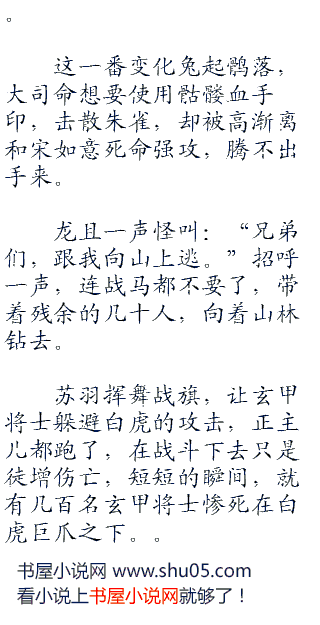 。
这一番变化兔起鹘落，
大司命想要使用骷髅血手
印，击散朱雀，却被高渐离
和宋如意死命强攻，腾不出
手来。
龙且一声怪叫：“兄弟
们，跟我向山上逃。”招呼
一声，连战马都不要了，带
着残余的几十人，向着山林
钻去。
苏羽挥舞战旗，让玄甲
将士躲避白虎的攻击，正主
儿都跑了，在战斗下去只是
徒增伤亡，短短的瞬间，就
有几百名玄甲将士惨死在白
虎巨爪之下。。
书屋小说网 www.shu05.com
看小说上书屋小说网就够了！